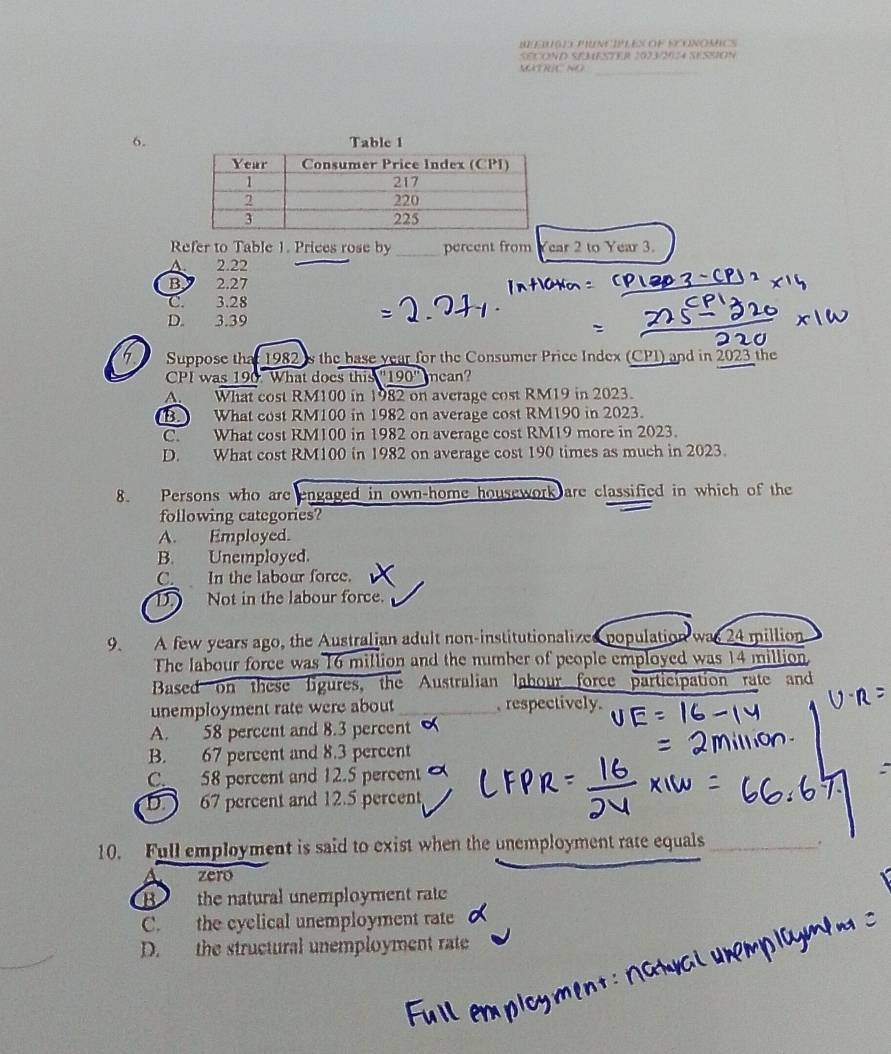 BEEB1013 PRINCIPLES OF ECONOMICS
SECOND SEMESTER 2023/2024 SESSION
MATRIC NO
6.
Table 1
Year Consumer Price Index (CPI)
1 217
2 220
3 225
Refer to Table 1. Prices rose by ______ percent from Year 2 to Year 3.
A. 2.22
B. 2.27
C. 3.28
D. 3.39
Inflation = CPI 3 - CPI 2 x 100
CPI 2
= 225 - 220 x 100
220
= 2.27%.
7. Suppose that 1982 is the base year for the Consumer Price Index (CPI) and in 2023 the
CPI was 190. What does this "190" mean?
A. What cost RM100 in 1982 on average cost RM19 in 2023.
B. What cost RM100 in 1982 on average cost RM190 in 2023.
C. What cost RM100 in 1982 on average cost RM19 more in 2023.
D. What cost RM100 in 1982 on average cost 190 times as much in 2023.
8. Persons who are engaged in own-home housework are classified in which of the
following categories?
A. Employed.
B. Unemployed.
C. In the labour force.
D. Not in the labour force.
9. A few years ago, the Australian adult non-institutionalized population was 24 million
The labour force was 16 million and the number of people employed was 14 million,
Based on these figures, the Australian labour force participation rate and
unemployment rate were about __________, respectively.
A. 58 percent and 8.3 percent
B. 67 percent and 8.3 percent
C. 58 percent and 12.5 percent
D. 67 percent and 12.5 percent
UE = 16 - 14
= 2 million.
LFPR = 16 x 100 = 66.67%
24
U.R =
=
10. Full employment is said to exist when the unemployment rate equals __________.
A. zero
B. the natural unemployment rate
C. the cyclical unemployment rate
D. the structural unemployment rate
Full employment: natural unemployment =